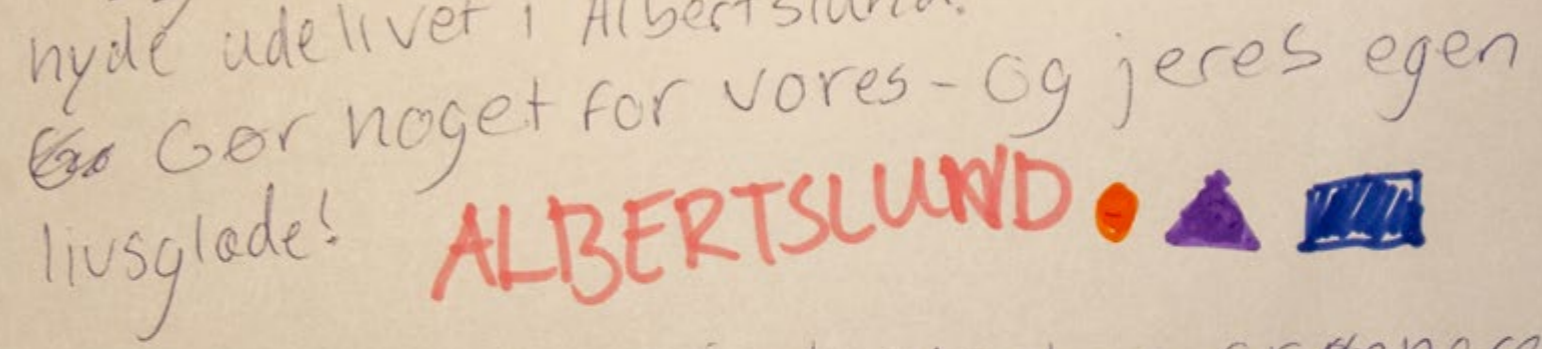 nyde udelivet i Albertslund.
Gør noget for vores - og jeres egen
livsglæde!
ALBERTSLUND